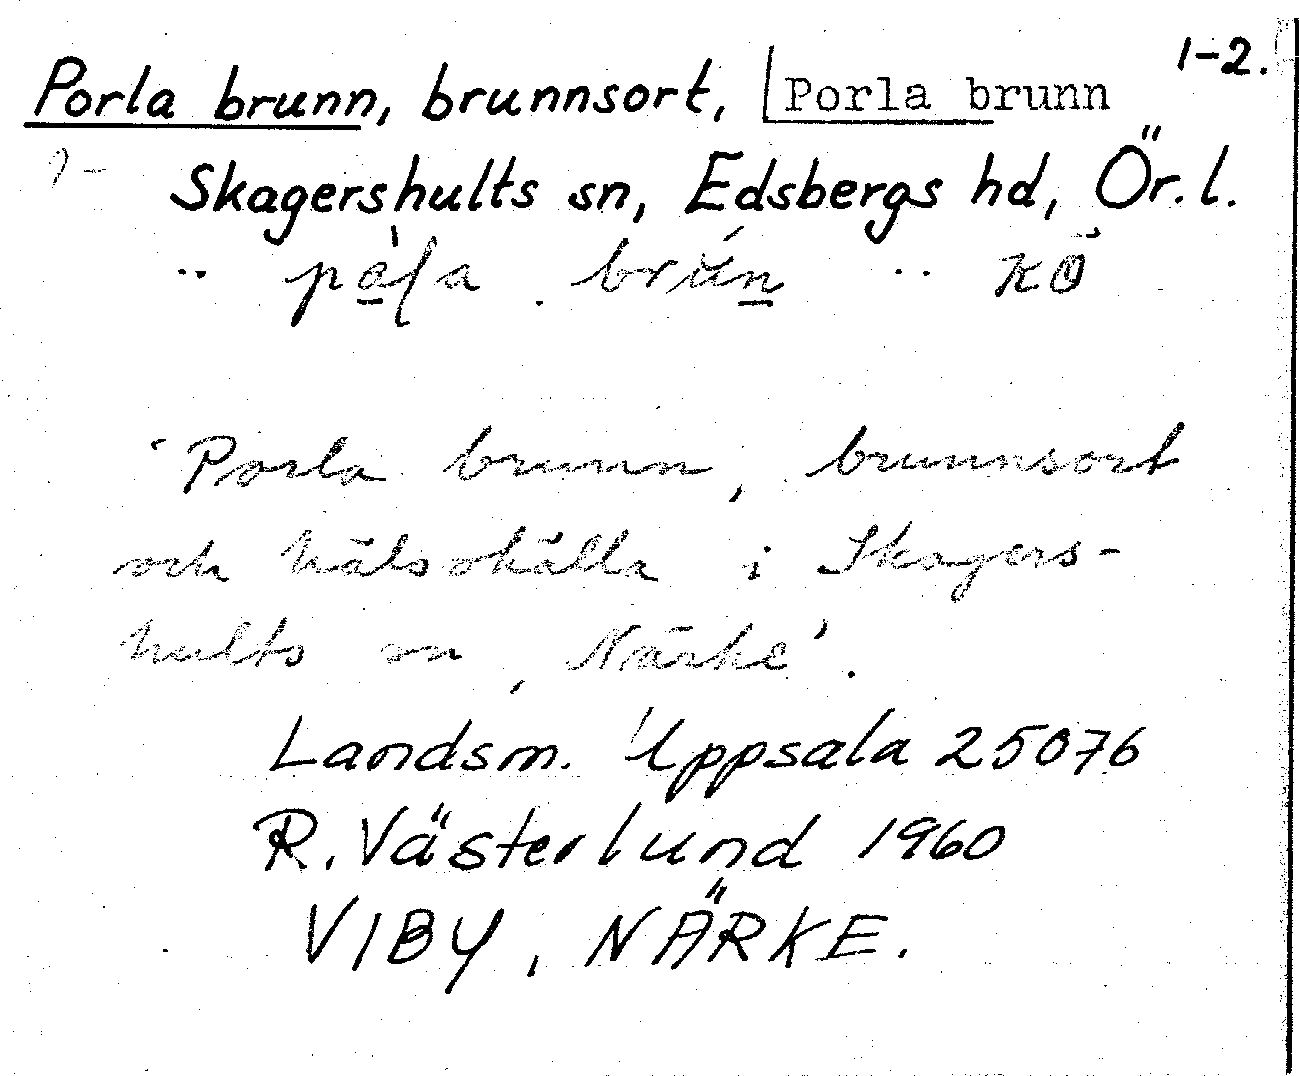 1-2.
Porla brunn, brunnsort, Porla brunn
Skagershults sn, Edsbergs hd, Ör.l.
brun̲ ·· KÖ
'Porla brunn, brunnsort
och hälsokälla i Skagers-
hults sn, Närke'.
Landsm. Uppsala 25076
R. Västerlund 1960
VIBY, NÄRKE.